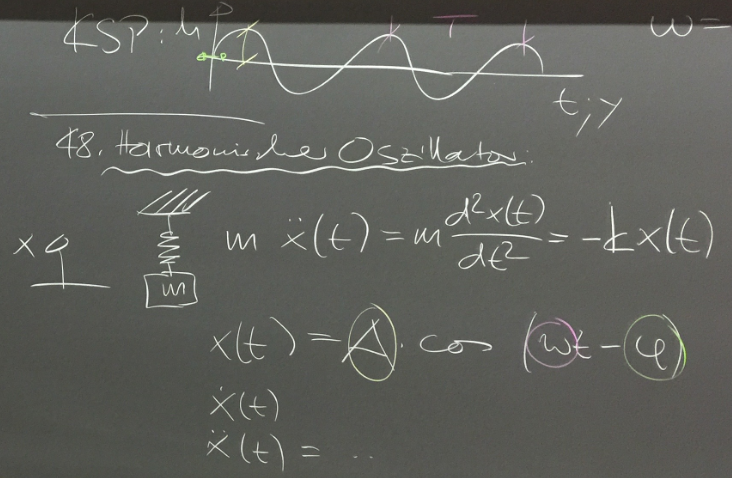 KSP: T ω=
t; y
48. Harmonischer Oszillator:
x m m ẍ(t) = m d²x(t)/dt² = -kx(t)
x(t) = A · cos (ωt - φ)
ẋ(t)
ẍ(t) = ...